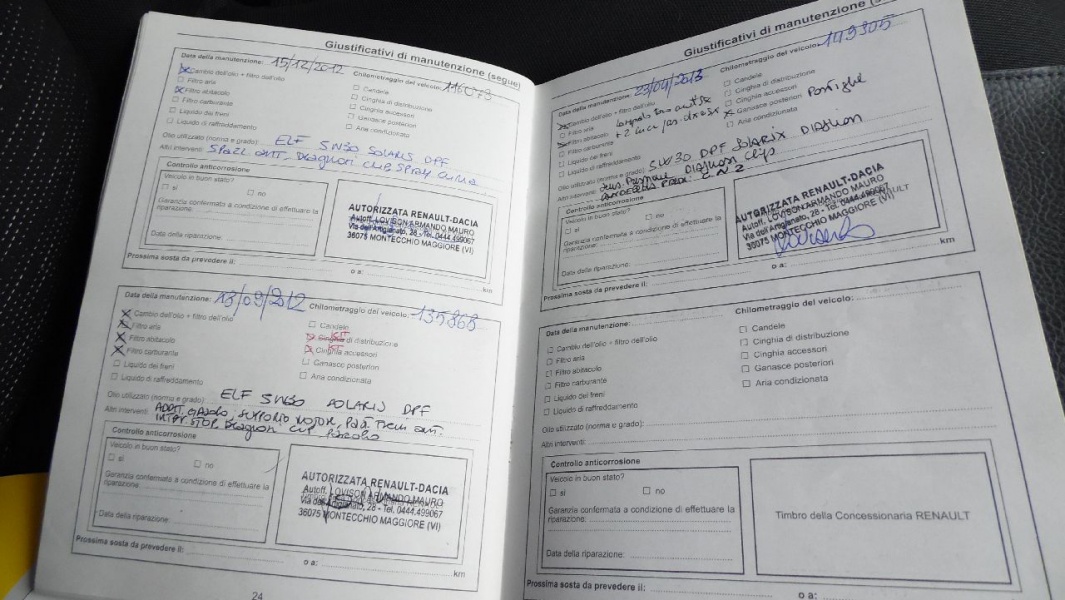 Giustificativi di manutenzione (segue)
Data della manutenzione: 15/12/2012 Chilometraggio del veicolo:
Cambio dell'olio + filtro dell'olio
Candele
Filtro aria
Cinghia di distribuzione
Filtro abitacolo
Cinghia accessori
Filtro carburante
Ganasce posteriori
Liquido dei freni
Aria condizionata
Liquido di raffreddamento
Olio utilizzato (norma e grado): ELF 5W30 SOLARIS DPF
Altri interventi: SPAZZ. ANT, DIAGNOSI CLIP SPRAY CLIMA
Controllo anticorrosione
Veicolo in buon stato?
sì no
Garanzia confermata a condizione di effettuare la
riparazione:
Data della riparazione:
AUTORIZZATA RENAULT-DACIA
Autoff. LOVISON ARMANDO MAURO
Via dell'Artigianato, 28 - Tel. 0444.499067
36075 MONTECCHIO MAGGIORE (VI)
Prossima sosta da prevedere il: o a: km
Data della manutenzione: 13/09/2012 Chilometraggio del veicolo: 135868
Cambio dell'olio + filtro dell'olio
Candele
Filtro aria
KIT
Cinghia di distribuzione
Filtro abitacolo
KIT
Cinghia accessori
Filtro carburante
Ganasce posteriori
Liquido dei freni
Aria condizionata
Liquido di raffreddamento
Olio utilizzato (norma e grado): ELF 5W30 SOLARIS DPF
Altri interventi: ADDIT. GASOLIO, SUPPORTO MOTORE, PAST. FRENI ANT.
INTER. STOP, DIAGNOSI CLIP
Controllo anticorrosione
Veicolo in buon stato?
sì no
Garanzia confermata a condizione di effettuare la
riparazione:
Data della riparazione:
AUTORIZZATA RENAULT-DACIA
Autoff. LOVISON ARMANDO MAURO
Via dell'Artigianato, 28 - Tel. 0444.499067
36075 MONTECCHIO MAGGIORE (VI)
Prossima sosta da prevedere il: o a: km
24
Giustificativi di manutenzione
Data della manutenzione: 23/04/2013 Chilometraggio del veicolo: 149305
Cambio dell'olio + filtro dell'olio
Candele
Filtro aria
Cinghia di distribuzione
Filtro abitacolo
Cinghia accessori
Filtro carburante
Ganasce posteriori Pastiglie
Liquido dei freni
Aria condizionata
Liquido di raffreddamento
Olio utilizzato (norma e grado): 5W30 DPF SOLARIX DIAGNOSI
Altri interventi: DIAGNOSI CLIP
N 2
Controllo anticorrosione
Veicolo in buon stato?
sì no
Garanzia confermata a condizione di effettuare la
riparazione:
Data della riparazione:
AUTORIZZATA RENAULT-DACIA
Autoff. LOVISON ARMANDO MAURO
Via dell'Artigianato, 28 - Tel. 0444.499067
36075 MONTECCHIO MAGGIORE (VI)
RENAULT
Prossima sosta da prevedere il: o a: km
Data della manutenzione: Chilometraggio del veicolo:
Cambio dell'olio + filtro dell'olio
Candele
Filtro aria
Cinghia di distribuzione
Filtro abitacolo
Cinghia accessori
Filtro carburante
Ganasce posteriori
Liquido dei freni
Aria condizionata
Liquido di raffreddamento
Olio utilizzato (norma e grado):
Altri interventi:
Controllo anticorrosione
Veicolo in buon stato?
sì no
Garanzia confermata a condizione di effettuare la
riparazione:
Data della riparazione:
Timbro della Concessionaria RENAULT
Prossima sosta da prevedere il: o a: